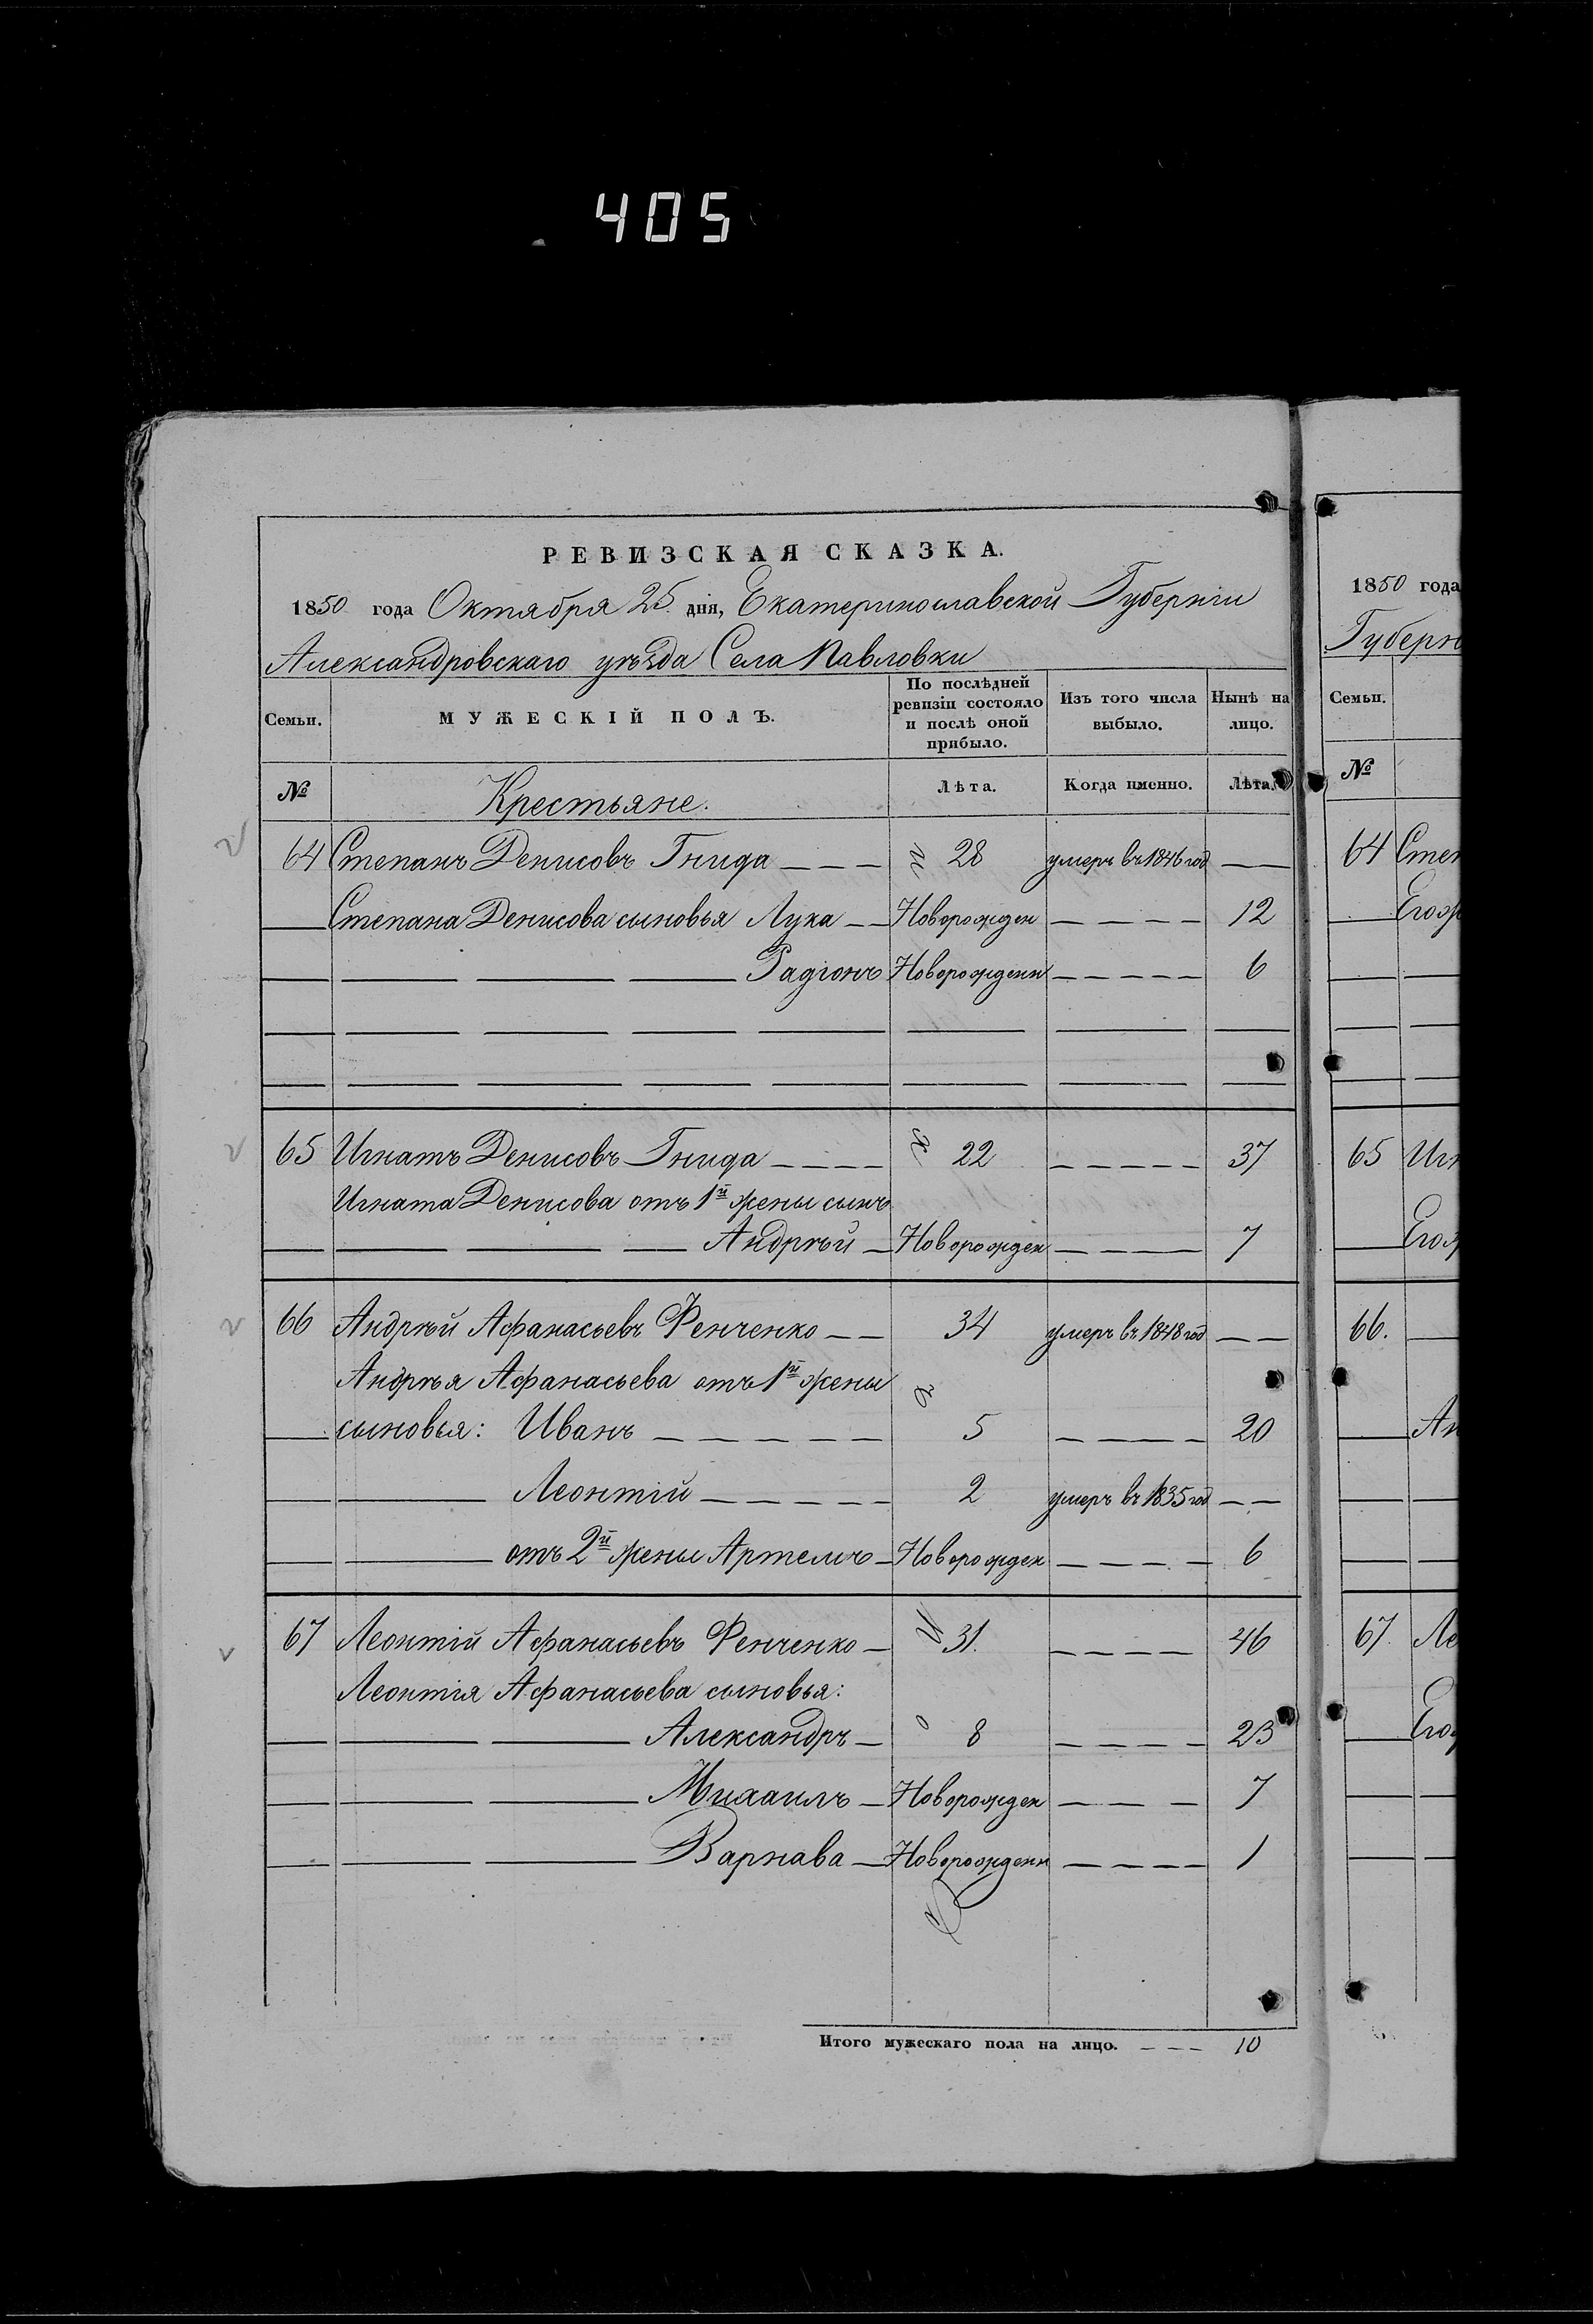 405
РЕВИЗСКАЯ СКАЗКА.
1850 года Октября 25 дня, Екатеринославской Губерніи
Александровскаго уѣзда Села Павловки
Семьи. МУЖЕСКІЙ ПОЛЪ. По послѣдней ревизіи состояло и послѣ оной прибыло. Изъ того числа выбыло. Нынѣ на лицо.
№ Крестьяне. Лѣта. Когда именно. Лѣта.
64 Степанъ Денисовъ Гнида — — — 28 умеръ въ 1846 год —
Степана Денисова сыновья Лука — — Новорожден — — — — 12
Радіонъ Новорожденн — — — — — 6
65 Игнатъ Денисовъ Гнида — — — — 22 — — — — — 37
Игната Денисова отъ 1й жены сынъ
Андрѣй — Новорожден — — — — 7
66 Андрѣй Афанасьевъ Фенченко — — 34 умеръ въ 1848 год — —
Андрѣя Афанасьева отъ 1й жены
сыновья: Иванъ — — — — — 5 — — — — 20
Леонтій — — — — — 2 умеръ въ 1835 год — —
отъ 2й жены Артемъ — Новорожден — — — — 6
67 Леонтій Афанасьевъ Фенченко — 31. — — — — 46
Леонтія Афанасьева сыновья:
Александръ — 8 — — — — 23
Михаилъ — Новорожден — — — 7
Варнава — Новорожденн — — — — 1
Итого мужескаго пола на лицо. — — — 10
1850 года
Губерн
Семьи.
№
64 Степ
Его
65 Игн
Его
66.
Ан
67. Ле
Его